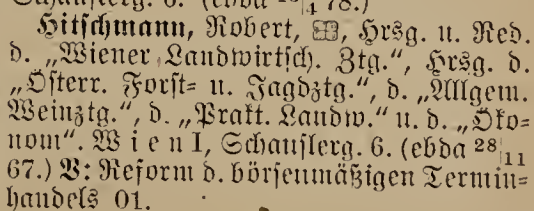 Schauflerg. 6. (ebda 28/4 78.)
Hitschmann, Robert, Hrsg. u. Red.
d. „Wiener Landwirtsch. Ztg.“, Hrsg. d.
„Österr. Forst- u. Jagdztg.“, d. „Allgem.
Weinztg.“, d. „Prakt. Landw.“ u. d. „Öko-
nom“. Wien I, Schauflerg. 6. (ebda 28/11
67.) V: Reform d. börsenmäßigen Termin-
handels 01.